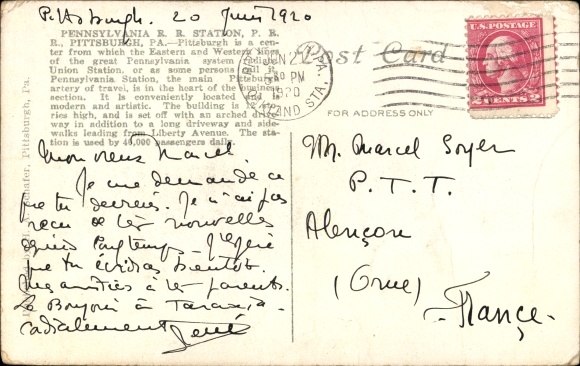 Pittsburgh. 20 Juin 1920
PENNSYLVANIA R. R. STATION, P. R.
R., PITTSBURGH, PA.—Pittsburgh is a cen-
ter from which the Eastern and Western lines
of the great Pennsylvania system radiate.
Union Station, or as some persons call it,
Pennsylvania Station, the main Pittsburgh
artery of travel, is in the heart of the business
section. It is conveniently located and is
modern and artistic. The building is 12 sto-
ries high, and is set off with an arched drive-
way in addition to a long driveway and side-
walks leading from Liberty Avenue. The sta-
tion is used by 40,000 passengers daily.
Post Card
FOR ADDRESS ONLY
PM
1920
GRAND STA.
U.S. POSTAGE
2 CENTS 2
Pittsburgh, Pa.
Mon vieux Marcel.
Je me demande ce
que tu deviens. Je n'ai pas
reçu de tes nouvelles
depuis longtemps. J'espère
que tu écriras bientôt.
amitiés à tes parents.
Le Bonjour à
cordialement René
Mr. Marcel Soyer
P. T. T.
Alençon
(Orne)
- France -